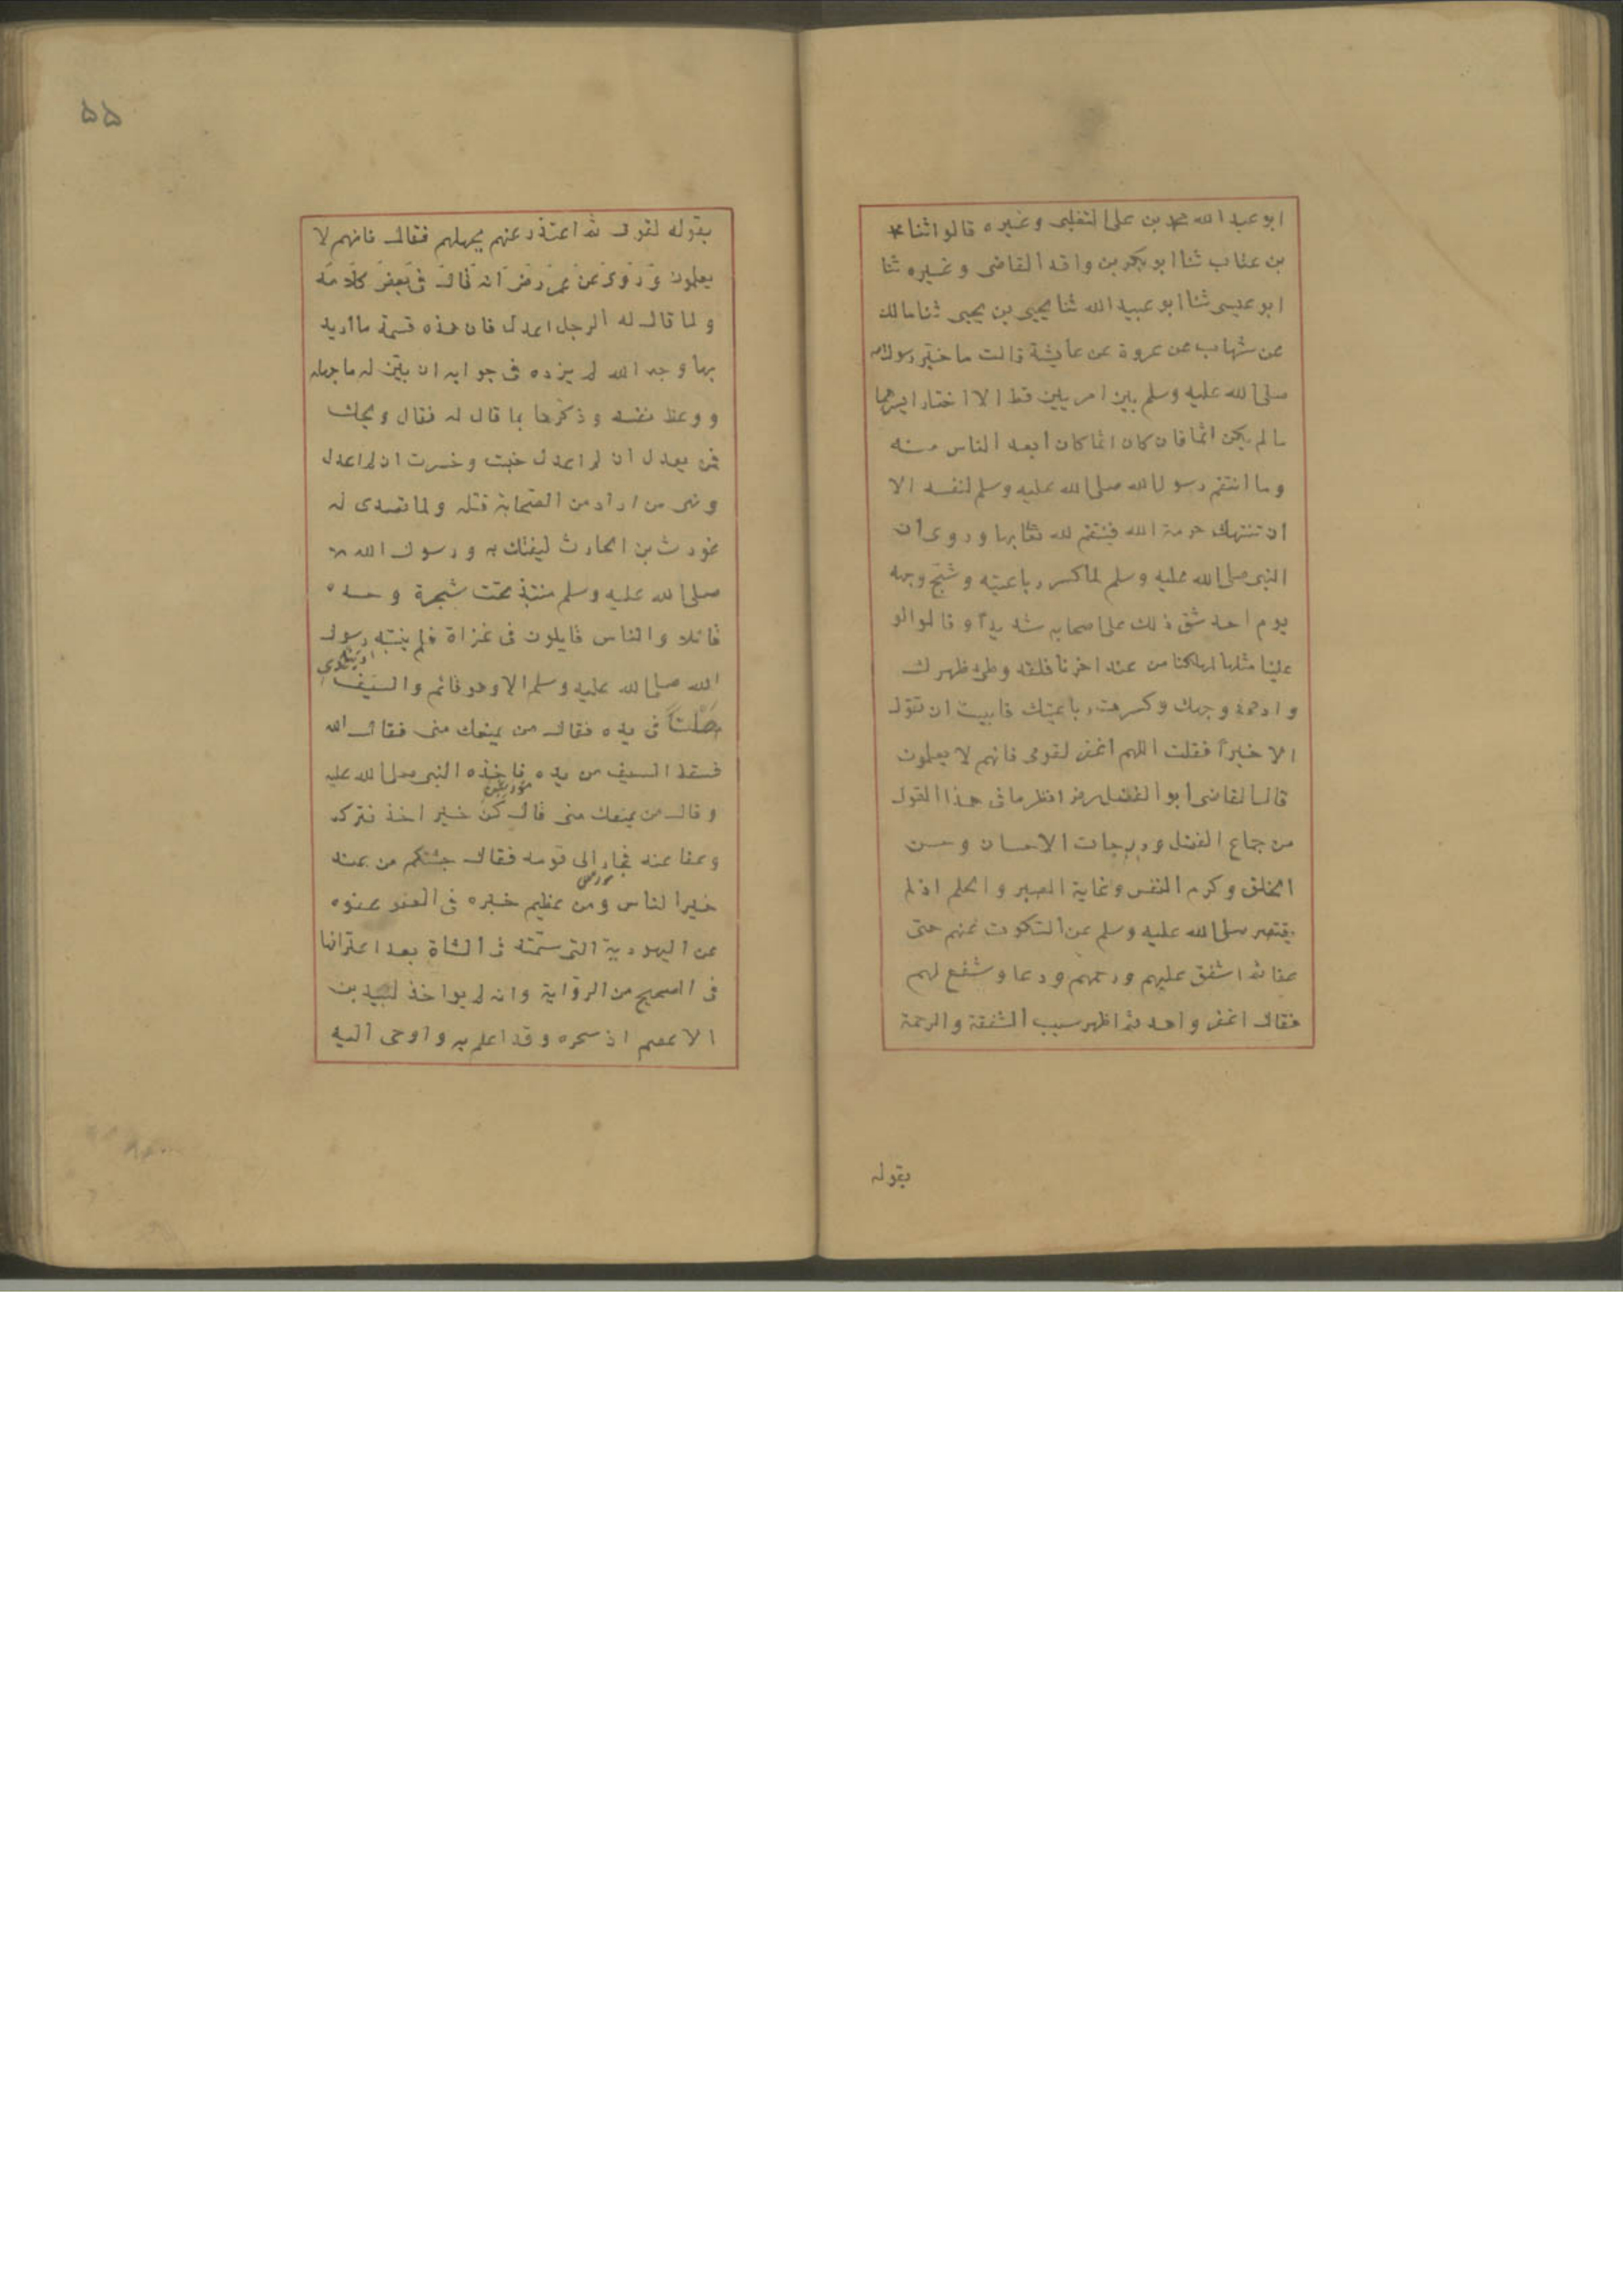 ابو عبد الله محمد بن على التغلبى وغيره قالوا ثنا محمد
بن عتاب ثنا ابو بكر بن واقد القاضى وغيره ثنا
ابو عيسى ثنا ابو عبيد الله ثنا يحيى بن يحيى ثنا مالك
عن شهاب عن عروة عن عايشة قالت ما خيّر رسول الله
صلى الله عليه وسلم بين امرين قط الا اختار ايسرهما
ما لم يكن اثما فان كان اثما كان ابعد الناس منه
وما انتقم رسول الله صلى الله عليه وسلم لنفسه الا
ان تنتهك حرمة الله فينتقم لله تعا بها وروى ان
النبى صلى الله عليه وسلم لما كسر رباعيته وشج وجهه
يوم احد شق ذلك على اصحابه شديدًا وقالوا لو
علينا مثلها لهلكنا من عند اخرنا فلقد وطئ ظهرك
وادمى وجهك وكسرت رباعيتك فابيت ان تقول
الا خيرًا فقلت اللهم اغفر لقومى فانهم لا يعلمون
قال القاضى ابو الفضل رضر انظر ما فى هذا القول
من جماع الفضل ودرجات الاحسان وحسن
الخلق وكرم النفس وغاية الصبر والحلم اذ لم
يقتصر صلى الله عليه وسلم عن السّكوت عنهم حتى
عفا ثم اشفق عليهم ورحمهم ودعا وشفع لهم
فقال اغفر واهد ثم اظهر سبب الشفقة والرحمة
بقوله
۵۵
بقوله لقومى ثم اعتذر عنهم بجهلهم فقال فانهم لا
يعلمون وروى عن عمر رضر انه قال فى بعض كلامه
ولما قال له الرجل اعدل فان هذه قسمة ما اريد
بها وجه الله لم يزده فى جوابه ان بيّن له ما جهله
ووعظ نفسه وذكّرها بما قال له فقال ويحك
فمن يعدل ان لم اعدل خبت وخسرت ان لم اعدل
ونهى من اراد من الصّحابة قتله ولما تصدى له
غورث بن الحارث ليفتك به ورسول الله
صلى الله عليه وسلم منتبذ تحت شجرة وحده
قائلا والناس قايلون فى غزاة فلم ينتبه رسول
الله صلى الله عليه وسلم الا وهو قائم والسّيف
صَلْتًا فى يده فقال من يمنعك منى فقال الله
فسقط السيف من يده فاخذه النبى صلى الله عليه
وقال من يمنعك منى قال كن خير اخذ فتركه
وعفا عنه فجاء الى قومه فقال جئتكم من عند
خير الناس ومن عظيم خبره فى العفو عفوه
عن اليهودية التى سمّته فى الشاة بعد اعترافها
فى الصحيح من الرّواية وانه لم يواخذ لبيد بن
الاعصم اذ سحره وقد اعلم به واوحى اليه